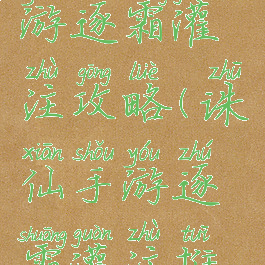 游逐霜灌
zhù gōng lüè zhū
注攻略(诛
xiān shǒu yóu zhú
仙手游逐
shuāng guàn zhù tuī
霜灌注推